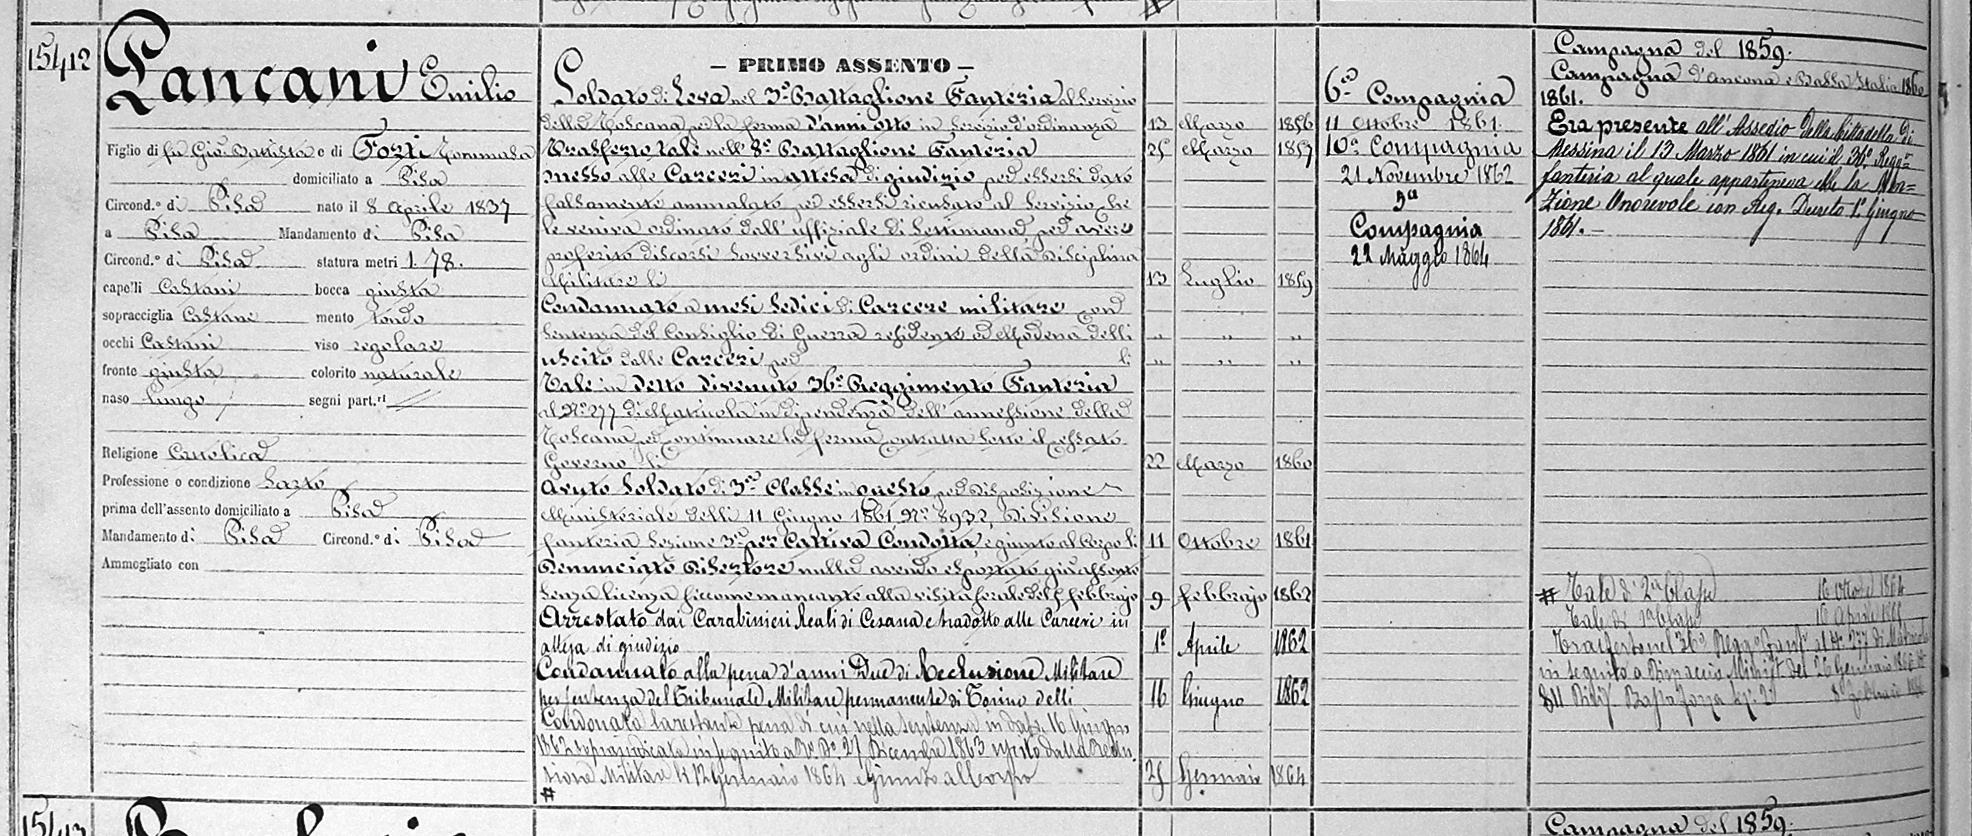 15412
Pancani Emilio
Figlio di fu Gio. Battista e di Forti Tommasa
domiciliato a Pisa
Circond.° di Pisa nato il 8 Aprile 1837
a Pisa Mandamento di Pisa
Circond.° di Pisa statura metri 1. 78.
capelli Castani bocca giusta
sopracciglia Castane mento tondo
occhi Castani viso regolare
fronte giusta colorito naturale
naso lungo segni part.ri
Religione Cattolica
Professione o condizione Sarto
prima dell'assento domiciliato a Pisa
Mandamento di Pisa Circond.° di Pisa
Ammogliato con
— PRIMO ASSENTO —
Soldato di Leva nel 3° Battaglione Fanteria al Servizio
della Toscana per la ferma d'anni otto in servizio d'ordinanza 13 Marzo 1856
Trasferto tale nell' 8° Battaglione Fanteria 25 Marzo 1857
messo alle Carceri in attesa di giudizio per essersi dato
falsamente ammalato per essersi ricusato al Servizio che
le veniva ordinato dall' uffiziale di Settimana per avere
proferito discorsi sovversivi agli ordini della disciplina
Militare li 13 Luglio 1859
Condannato a mesi sedici di Carcere militare con
Sentenza del Consiglio di Guerra residente ad Modena delli " " "
uscito dalle Carceri per li " " "
Tale in detto divenuto 36° Reggimento Fanteria
al N° 277 di Matricola in dipendenza dell' annessione della
Toscana per continuare la ferma contratta sotto il cessato
Governo li 22 Marzo 1860
Avuto Soldato di 3a Classe in questo per disposizione
Ministeriale delli 11 Giugno 1861 N° 8932, Divisione
fanteria Sezione 3a per Cattiva Condotta, e giunto al Corpo li 11 Ottobre 1861
Denunciato Disertore nulla avendo esportato già assente
senza licenza siccome mancante alla visita serale dell' 8 febbrajo 9 febbrajo 1862
Arrestato dai Carabinieri Reali di Cesana e tradotto alle Carceri in
attesa di giudizio 1° Aprile 1862
Condannato alla pena d'anni Due di Reclusione Militare
per sentenza del Tribunale Militare permanente di Torino delli 16 Giugno 1862
Condonata la restante pena di cui nella sentenza in data 16 Giugno
1862 sopraindicata in seguito a R. D. 27 Dicembre 1863 uscito dalla Reclu
sione Militare li 12 Gennaio 1864 e Giunto al Corpo 25 Gennaio 1864
#
6a Compagnia
11 Ottobre 1861.
10a Compagnia
21 Novembre 1862
5a
Compagnia
22 Maggio 1864
Campagna del 1859.
Campagna d'Ancona e Bassa Italia 1860
1861.
Era presente all' Assedio della Cittadella di
Messina il 13 Marzo 1861 in cui il 36° Regg.
fanteria al quale apparteneva ebbe la Men=
zione Onorevole con Reg. Decreto 1° Giugno
1861. —
# Tale di 2a Classe 16 Ottobre 1864
Tale di 1a Classe 16 Aprile
Trasferto nel 36° Regg.to Fant. al N° 277 di Matricola
in seguito a Dispaccio Minist. del 26 Gennaio
811 Divis. Bassa forza Sez. 2a 8 Febbraio
15413
Campagna del 1859.